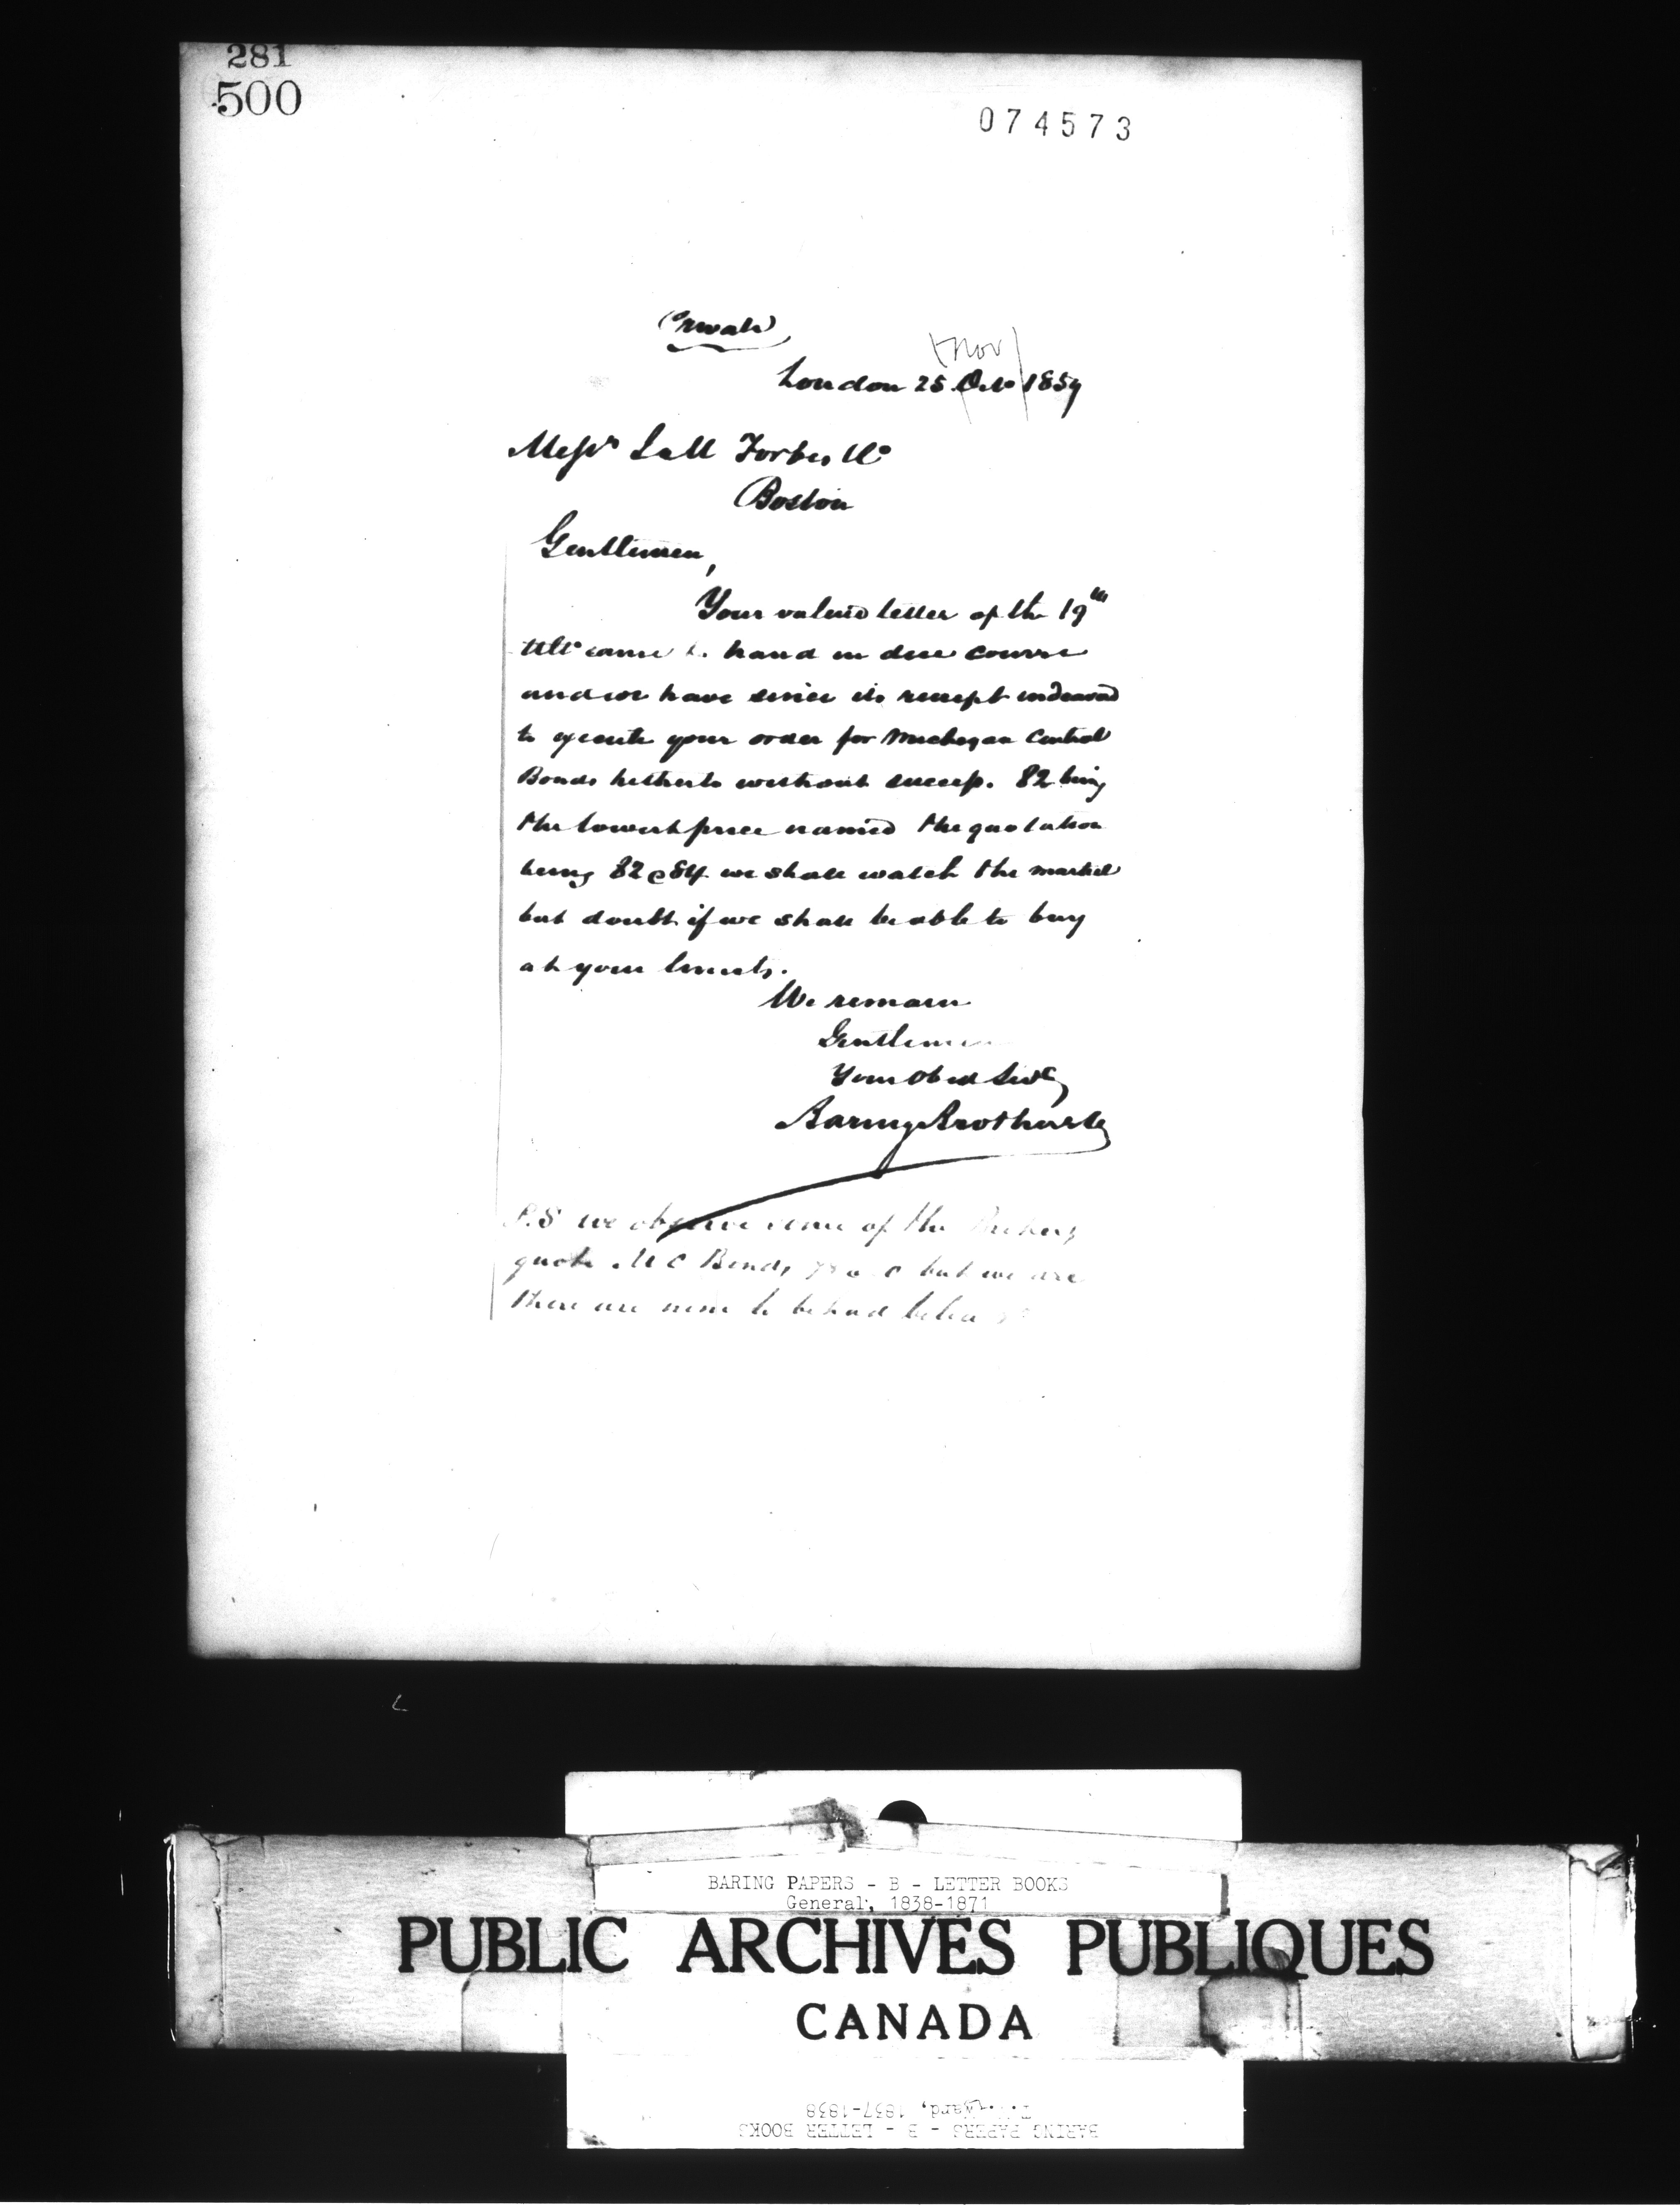 281
500
074573
(Private)
(Nov)
London 25 Octo 1859
Messrs Forbes & Co
Boston
Gentlemen,
Your valued letter of the 19th
Ulto came to hand in due course
and we have since its receipt endeavored
to execute your order for Michigan Central
Bonds hitherto without success. 82 being
the lowest price named the quotation
being 82 @ 84 we shall watch the market
but doubt if we shall be able to buy
at your limits.
We remain
Gentlemen
Your Obed Servts
Baring Brothers & Co
P.S we observe some of the
quote M C Bonds but we are
there are none to be had below
BARING PAPERS - B - LETTER BOOKS
General, 1838-1871
PUBLIC ARCHIVES PUBLIQUES
CANADA
Ward, 1837-1838
BARING PAPERS - B - LETTER BOOKS